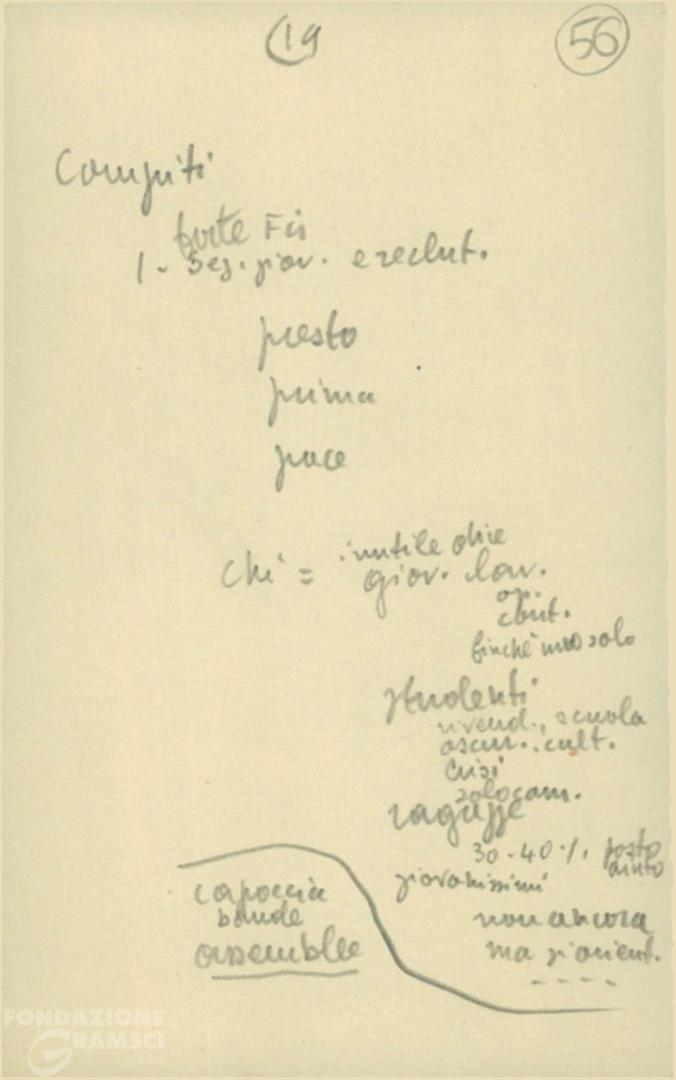 19
56
Compiti
forte FGS
1 - Sez. giov. e reclut.
presto
prima
pace
Chi = inutile chie
giov. lav.
op.
cont.
finché uno solo
studenti
rivend., scuola
oscur. cult.
crisi
solo cam.
ragazze
30-40% posto
aiuto
giovanissimi
non ancora
ma si orient.
capoccia
bande
assemblee
FONDAZIONE
GRAMSCI
onlus